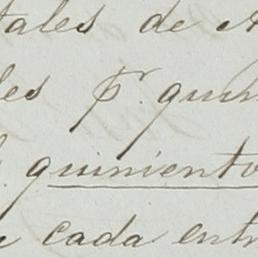 tales de A
les pr. quin
quiniento
cada entr